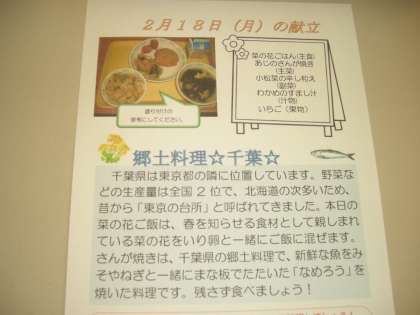 2月18日(月)の献立
菜の花ごはん(主食)
あじのさんが焼き
(主菜)
小松菜の辛し和え
(副菜)
わかめのすまし汁
(汁物)
いちご(果物)
盛り付けの
参考にしてください。
郷土料理☆千葉☆
千葉県は東京都の隣に位置しています。野菜な
どの生産量は全国2位で、北海道の次多いため、
昔から「東京の台所」と呼ばれてきました。本日の
菜の花ご飯は、春を知らせる食材として親しまれ
ている菜の花をいり卵と一緒にご飯に混ぜます。
さんが焼きは、千葉県の郷土料理で、新鮮な魚をみ
そやねぎと一緒にまな板でたたいた「なめろう」を
焼いた料理です。残さず食べましょう!